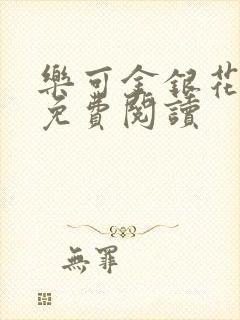 樂可金銀花
免費閱讀
無罪